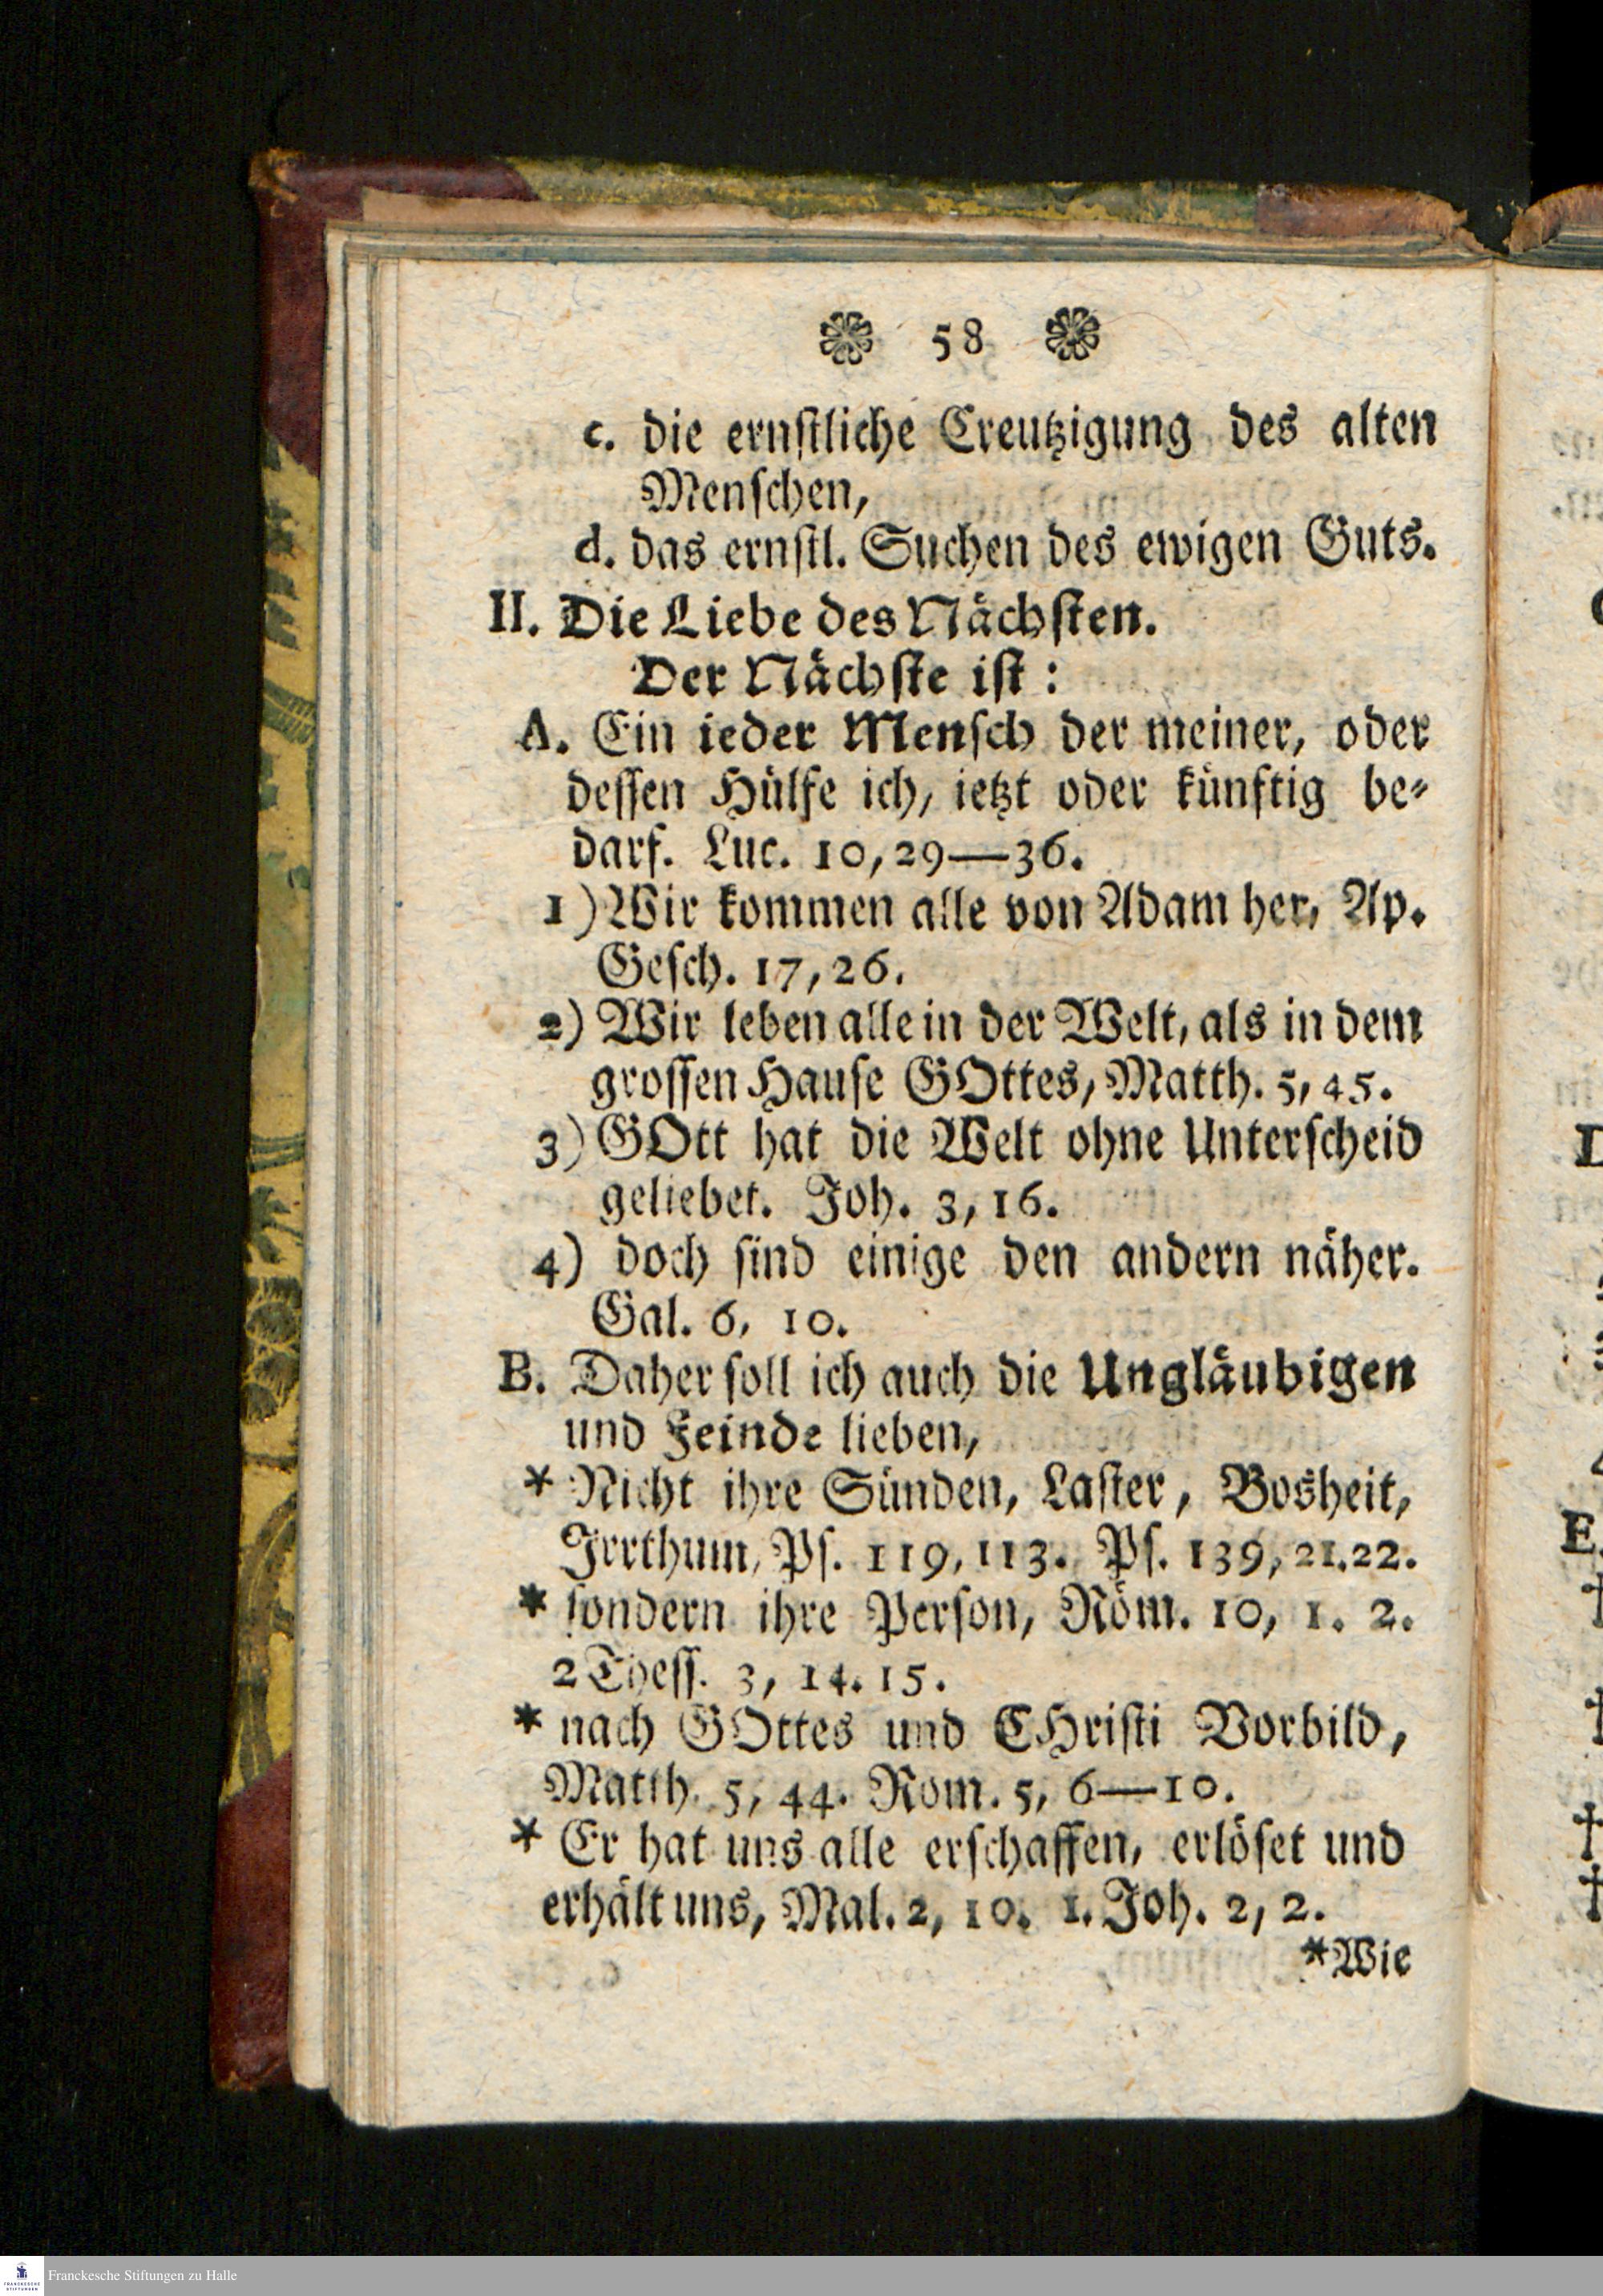 58
c. die ernſtliche Creutzigung des alten
Menſchen,
d. das ernſtl. Suchen des ewigen Guts.
II. Die Liebe des Nächſten.
Der Nächſte iſt:
A. Ein ieder Menſch der meiner, oder
deſſen Hülfe ich, ietzt oder künftig be⸗
darf. Luc. 10, 29—36.
1) Wir kommen alle von Adam her, Ap.
Geſch. 17, 26.
2) Wir leben alle in der Welt, als in dem
groſſen Hauſe GOttes, Matth. 5, 45.
3) GOtt hat die Welt ohne Unterſcheid
geliebet. Joh. 3, 16.
4) doch ſind einige den andern näher.
Gal. 6, 10.
B. Daher ſoll ich auch die Ungläubigen
und Feinde lieben,
* Nicht ihre Sünden, Laſter, Bosheit,
Irrthum, Pſ. 119, 113. Pſ. 139, 21.22.
* ſondern ihre Perſon, Röm. 10, 1. 2.
2 Theſſ. 3, 14. 15.
* nach GOttes und CHriſti Vorbild,
Matth. 5, 44. Rom. 5, 6—10.
* Er hat uns alle erſchaffen, erlöſet und
erhält uns, Mal. 2, 10. 1. Joh. 2, 2.
*Wie
Franckesche Stiftungen zu Halle